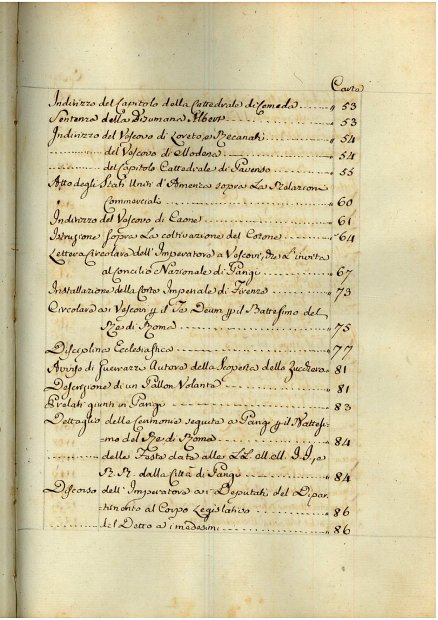 Carte
Indirizzo del Capitolo della Cattedrale di Ceneda " 53
Sentenza della Disumana Albert " 53
Indirizzo del Vescovo di Loreto, e Recanati " 54
del Vescovo di Modena " 54
del Capitolo Cattedrale di " 55
Atto degli Stati Uniti d'America sopra La Relazione
Commerciale " 60
Indirizzo del Vescovo di " 61
Istruzione sopra La coltivazione del Cotone " 64
Lettera Circolare dell'Imperatore a Vescovi, che L'invita
al Concilio Nazionale di Parigi " 67
Installazione della Corte Imperiale di Firenze " 73
Circolare a' Vescovi il Te Deum il Battesimo del
Re di Roma " 75
Disciplina Ecclesiastica " 77
Avviso di Autore della Scoperta dello Zucchero 81
Descrizione di un Pallon Volante " 81
Prelati giunti in Parigi " 83
Dettaglio della Cerimonia seguita a Parigi il Battesi-
mo del Re di Roma " 84
della Festa data alle LL. MM. II., e
RR. dalla Città di Parigi " 84
Discorso dell'Imperatore ai Deputati del Dipar-
timento al Corpo Legislativo " 86
del Detto a i medesimi " 86